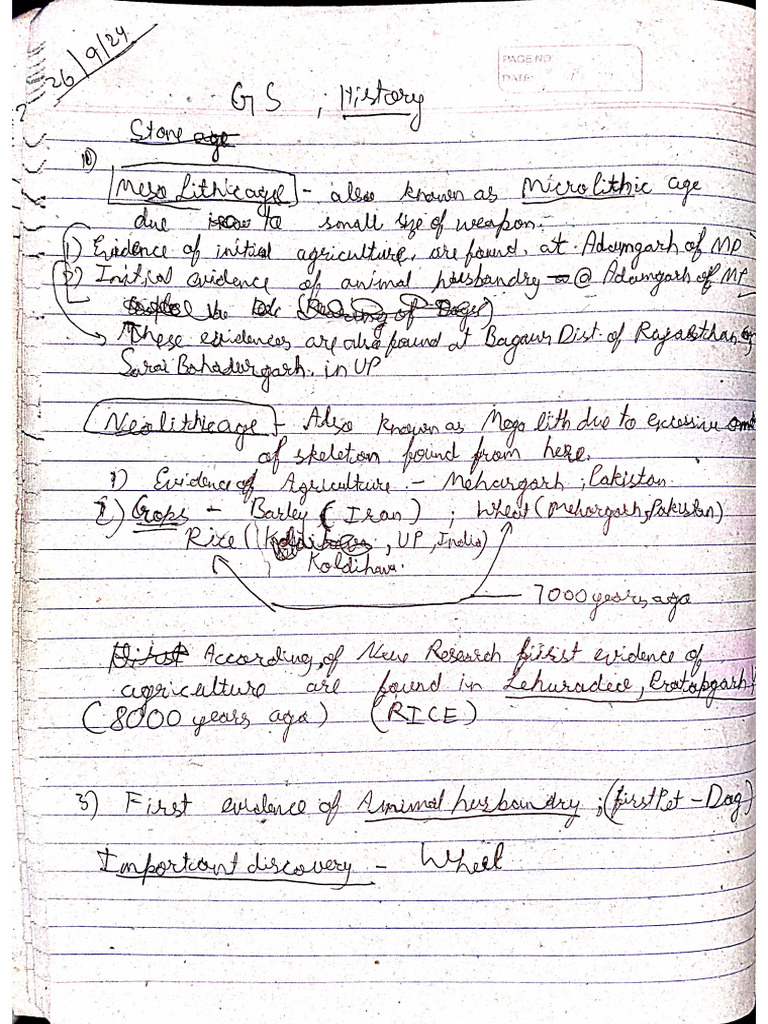 26/9/24
PAGE NO.
DATE:
GS , History
Stone age
Meso Lithic age - also known as Microlithic age
due to small size of weapon.
1) Evidence of initial agriculture, are found, at Adamgarh of MP
2) Initial evidence of animal husbandry - @ Adamgarh of MP
These evidences are also found at Bagaur Dist. of Rajasthan
Sarai Bahadurgarh, in UP
Neolithic age - Also known as Mega lith due to excessive amt
of skeleton found from here.
1) Evidence of Agriculture - Mehargarh, Pakistan.
2) Crops - Barley (Iran) ; Wheat (Mehargarh, Pakistan)
Rice ( , UP, India)
Koldihava.
7000 years ago
First According, of New Research first evidence of
agriculture are found in Lehuradeva, Pratapgarh
(8000 years ago) (RICE)
3) First evidence of Animal husbandry ; (first Pet - Dog)
Important discovery - Wheel